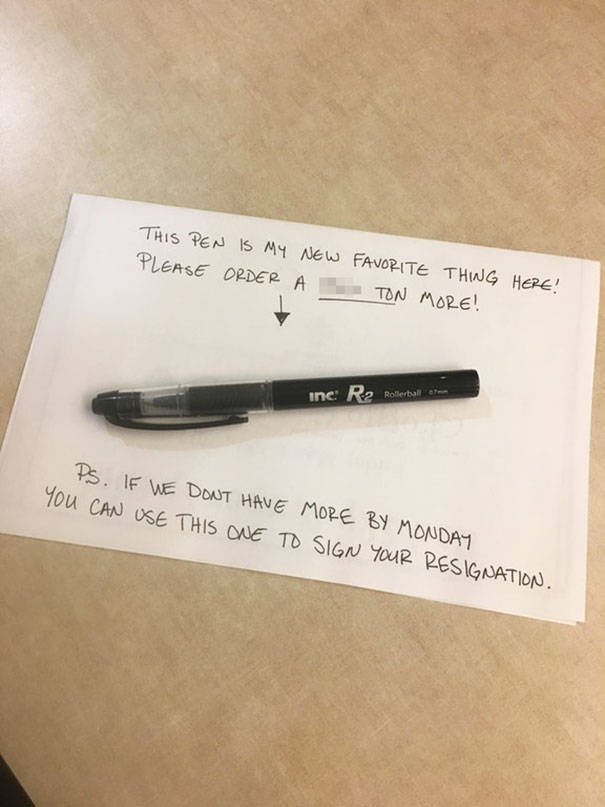 THIS PEN IS MY NEW FAVORITE THING HERE!
PLEASE ORDER A TON MORE!
inc. R2 Rollerball 0.7mm
PS. IF WE DONT HAVE MORE BY MONDAY
YOU CAN USE THIS ONE TO SIGN YOUR RESIGNATION.